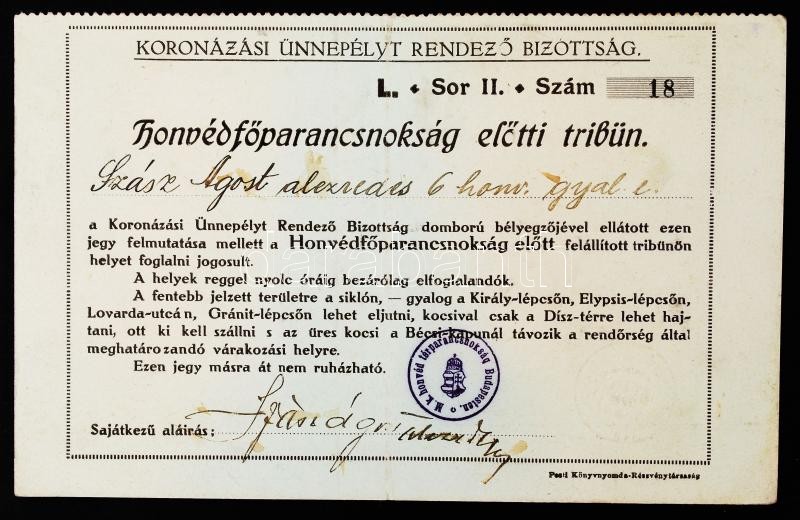 KORONÁZÁSI ÜNNEPÉLYT RENDEZŐ BIZOTTSÁG.
L. • Sor II. • Szám 18
Honvédfőparancsnokság előtti tribün.
Szász Ágost alezredes 6 honv. gyal e.
a Koronázási Ünnepélyt Rendező Bizottság domború bélyegzőjével ellátott ezen
jegy felmutatása mellett a Honvédfőparancsnokság előtt felállított tribünön
helyet foglalni jogosult.
A helyek reggel nyolc óráig bezárólag elfoglalandók.
A fentebb jelzett területre a siklón, — gyalog a Király-lépcsőn, Elypsis-lépcsőn,
Lovarda-utcán, Gránit-lépcsőn lehet eljutni, kocsival csak a Dísz-térre lehet haj-
tani, ott ki kell szállni s az üres kocsi a Bécsi-kapunál távozik a rendőrség által
meghatározandó várakozási helyre.
Ezen jegy másra át nem ruházható.
M. k. honvéd térparancsnokság Budapesten.
Sajátkezű aláírás: Szász Ágost
Pesti Könyvnyomda-Részvénytársaság
darabanth